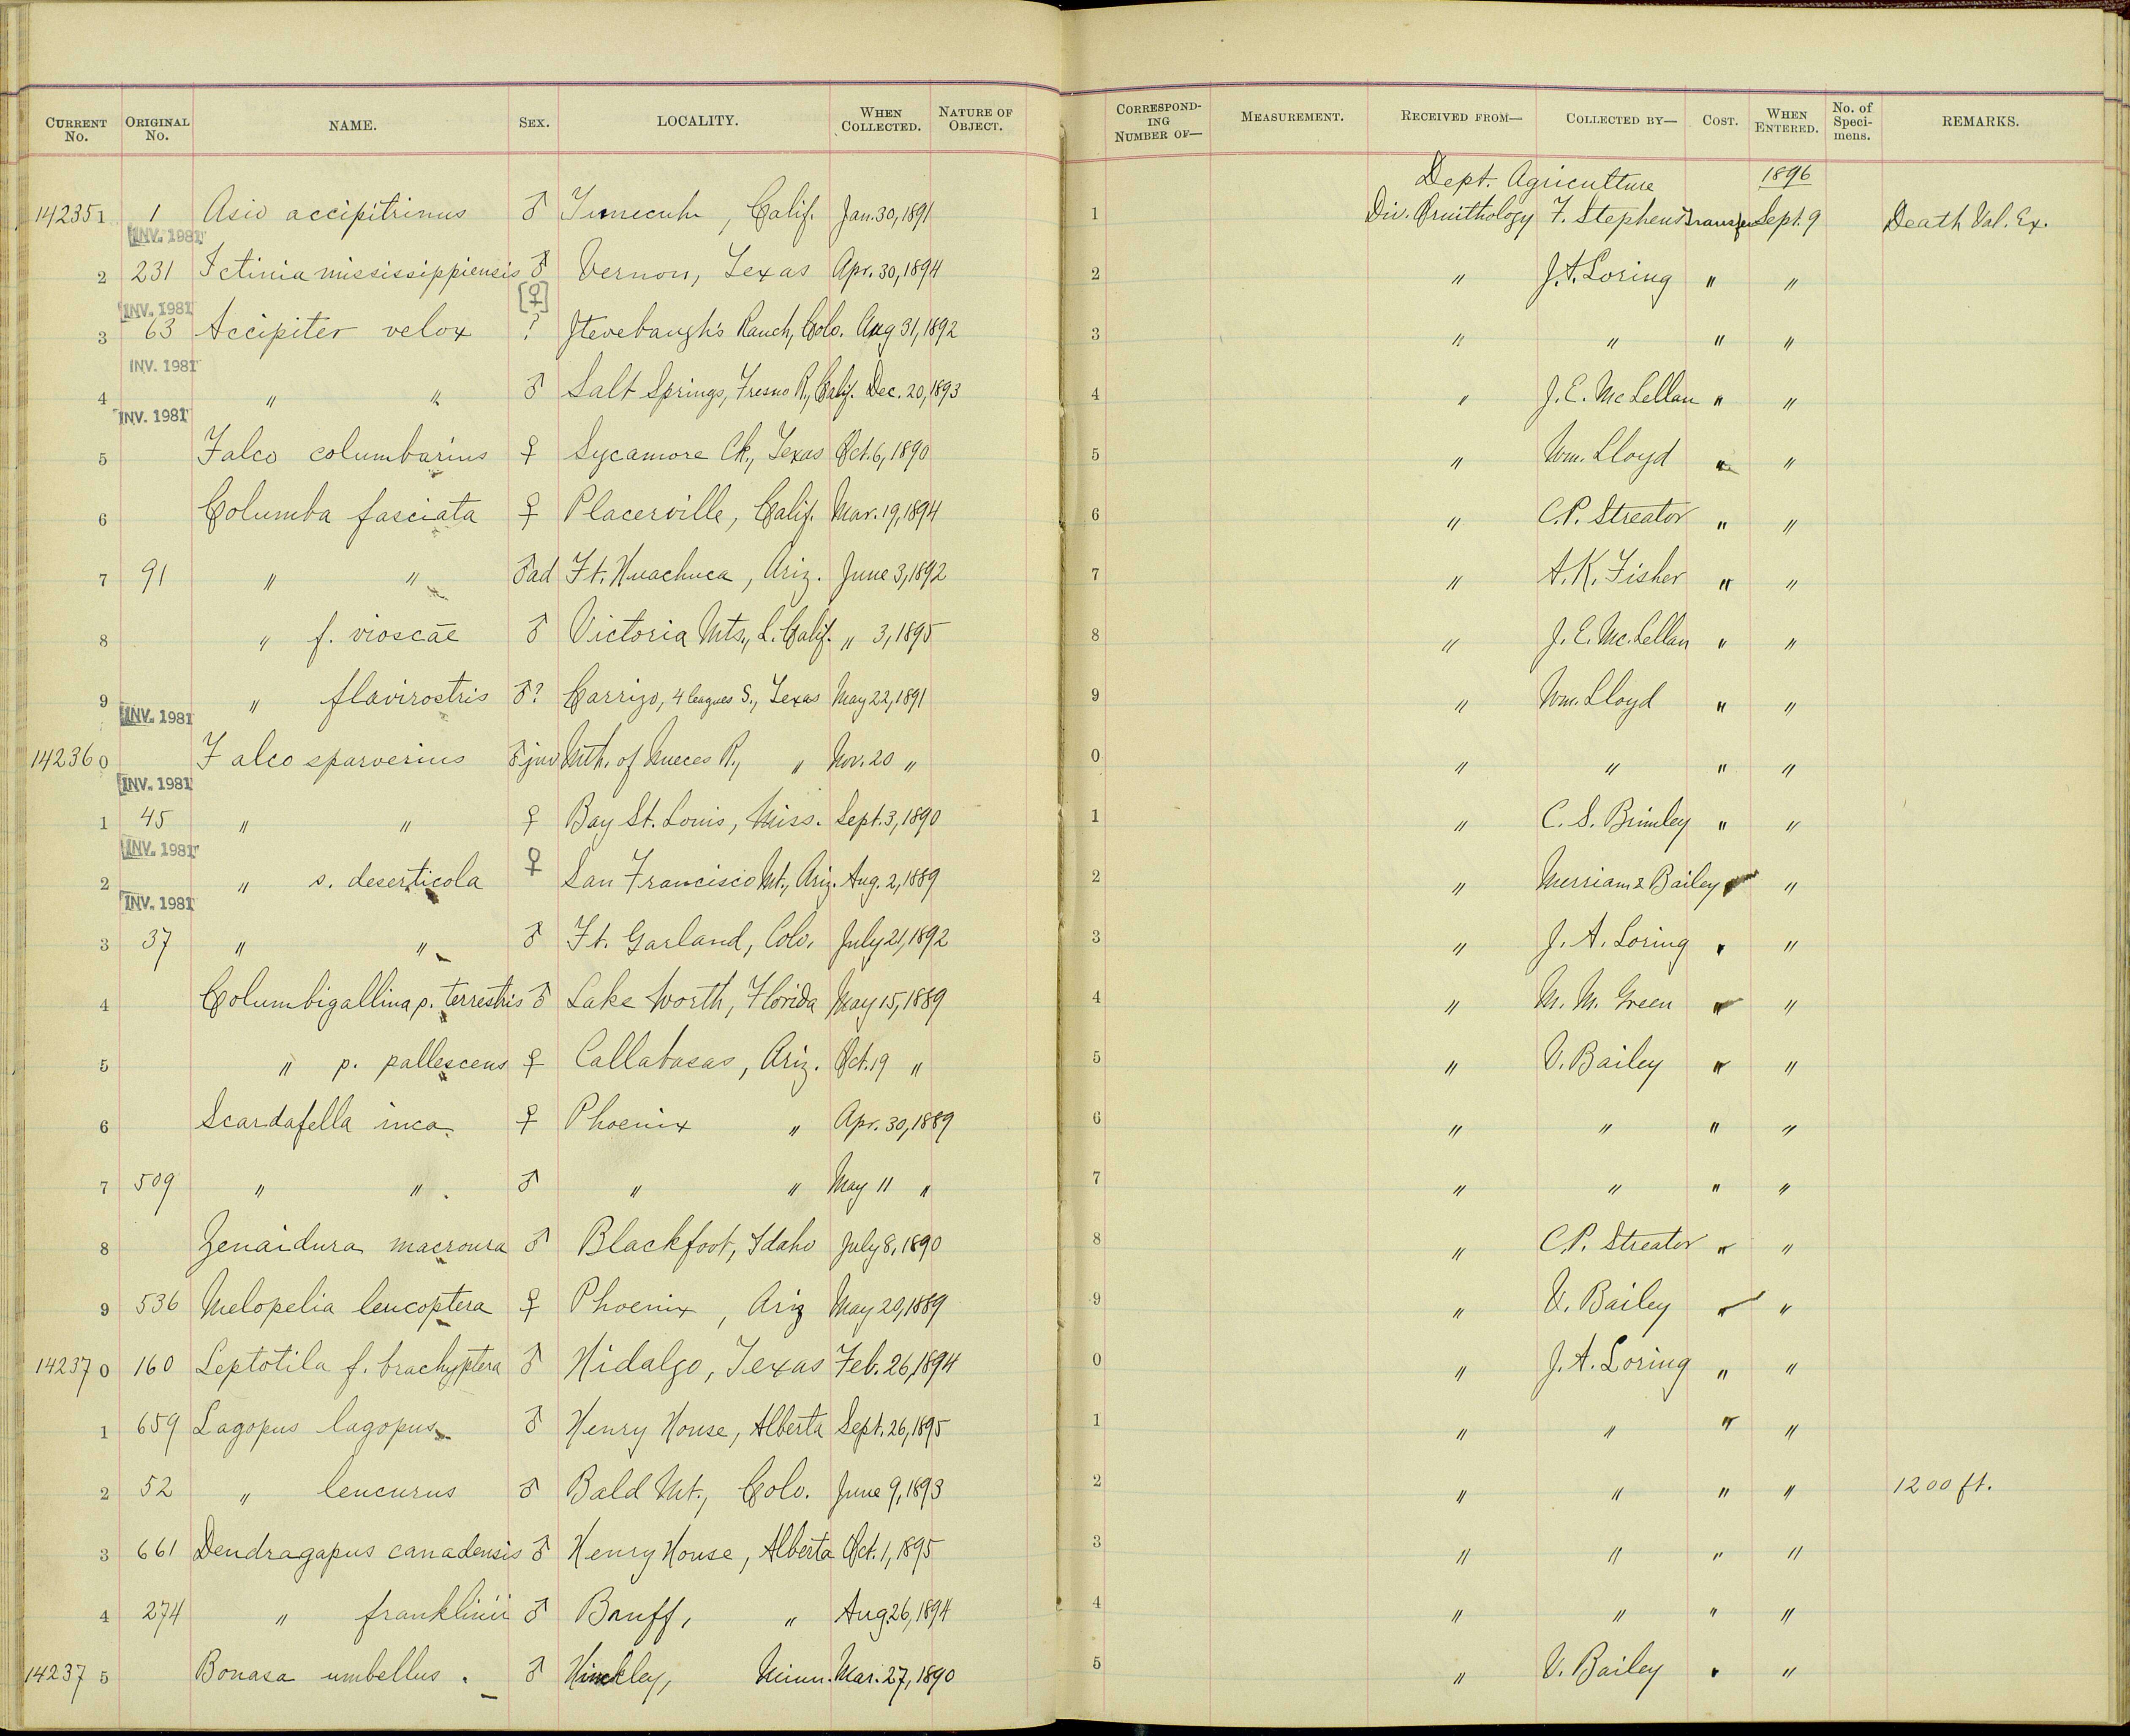 CURRENT No. ORIGINAL No. NAME. SEX. LOCALITY. WHEN COLLECTED. NATURE OF OBJECT. CORRESPONDING NUMBER OF— MEASUREMENT. RECEIVED FROM— COLLECTED BY— COST. WHEN ENTERED. No. of Specimens. REMARKS.
Dept. Agriculture 1896
142351 1 Asio accipitrinus ♂ Temecula, Calif. Jan. 30, 1891 1 Div. Ornithology F. Stephens Transfer Sept. 9 Death Val. Ex.
INV. 1981
2 231 Ictinia mississippiensis ♂ Vernon, Texas Apr. 30, 1894 2 " J. A. Loring " "
INV. 1981 [♀]
3 63 Accipiter velox ? Stevebaugh's Ranch, Colo. Aug 31, 1892 3 " " " "
INV. 1981
4 " " ♂ Salt Springs, Fresno R., Calif. Dec. 20, 1893 4 " J. E. McLellan " "
INV. 1981
5 Falco columbarius ♀ Sycamore Ck., Texas Oct. 6, 1890 5 " Wm. Lloyd " "
6 Columba fasciata ♀ Placerville, Calif. Mar. 19, 1894 6 " C. P. Streator " "
7 91 " " ♂ ad Ft. Huachuca, Ariz. June 3, 1892 7 " A. K. Fisher " "
8 " f. vioscae ♂ Victoria Mts., L. Calif. " 3, 1895 8 " J. E. McLellan " "
9 " flavirostris ♂? Carrizo, 4 leagues S., Texas May 22, 1891 9 " Wm. Lloyd " "
INV. 1981
142360 Falco sparverius ♂ juv Mth. of Nueces R., " Nov. 20 " 0 " " " "
INV. 1981
1 45 " " ♀ Bay St. Louis, Miss. Sept. 3, 1890 1 " C. S. Brimley " "
INV. 1981
2 " s. deserticola ♀ San Francisco Mt., Ariz. Aug. 2, 1889 2 " Merriam & Bailey " "
INV. 1981
3 37 " " ♂ Ft. Garland, Colo. July 21, 1892 3 " J. A. Loring " "
4 Columbigallina p. terrestris ♂ Lake Worth, Florida May 15, 1889 4 " M. M. Green " "
5 " p. pallescens ♀ Callabasas, Ariz. Oct. 19 " 5 " V. Bailey " "
6 Scardafella inca ♀ Phoenix " Apr. 30, 1889 6 " " " "
7 509 " " ♂ " " May 11 " 7 " " " "
8 Zenaidura macroura ♂ Blackfoot, Idaho July 8, 1890 8 " C. P. Streator " "
9 536 Melopelia leucoptera ♀ Phoenix, Ariz May 20, 1889 9 " V. Bailey " "
142370 160 Leptotila f. brachyptera ♂ Hidalgo, Texas Feb. 26, 1894 0 " J. A. Loring " "
1 659 Lagopus lagopus ♂ Henry House, Alberta Sept. 26, 1895 1 " " " "
2 52 " leucurus ♂ Bald Mt., Colo. June 9, 1893 2 " " " " 1200 ft.
3 661 Dendragapus canadensis ♂ Henry House, Alberta Oct. 1, 1895 3 " " " "
4 274 " franklinii ♂ Banff, " Aug. 26, 1894 4 " " " "
142375 Bonasa umbellus. ♂ Hinckley, Minn. Mar. 27, 1890 5 " V. Bailey " "